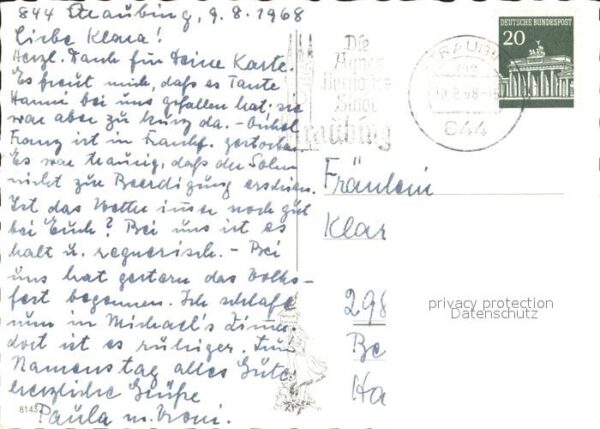 844 Straubing, 9.8.1968
Liebe Klara!
Herzl. Dank für Deine Karte.
Es freut mich, daß es Tante
Hanni bei uns gefallen hat. sie
war aber zu kurz da. - Onkel
Franz ist in Frankf. gestorben
Es war traurig, daß der Sohn
nicht zur Beerdigung erschien.
Ist das Wetter immer noch gut
bei Euch? Bei uns ist es
kalt u. regnerisch. - Bei
uns hat gestern das Volks-
fest begonnen. Ich schlafe
nun in Michael's Zimmer
dort ist es ruhiger. Zum
Namenstag alles Gute
herzliche Grüße
Paula u. Vroni.
8143
Die
Agnes
Bernauer
Stadt
Straubing
STRAUBING
844
DEUTSCHE BUNDESPOST
20
Fräulein
Klar
298
Be
Ha
privacy protection
Datenschutz